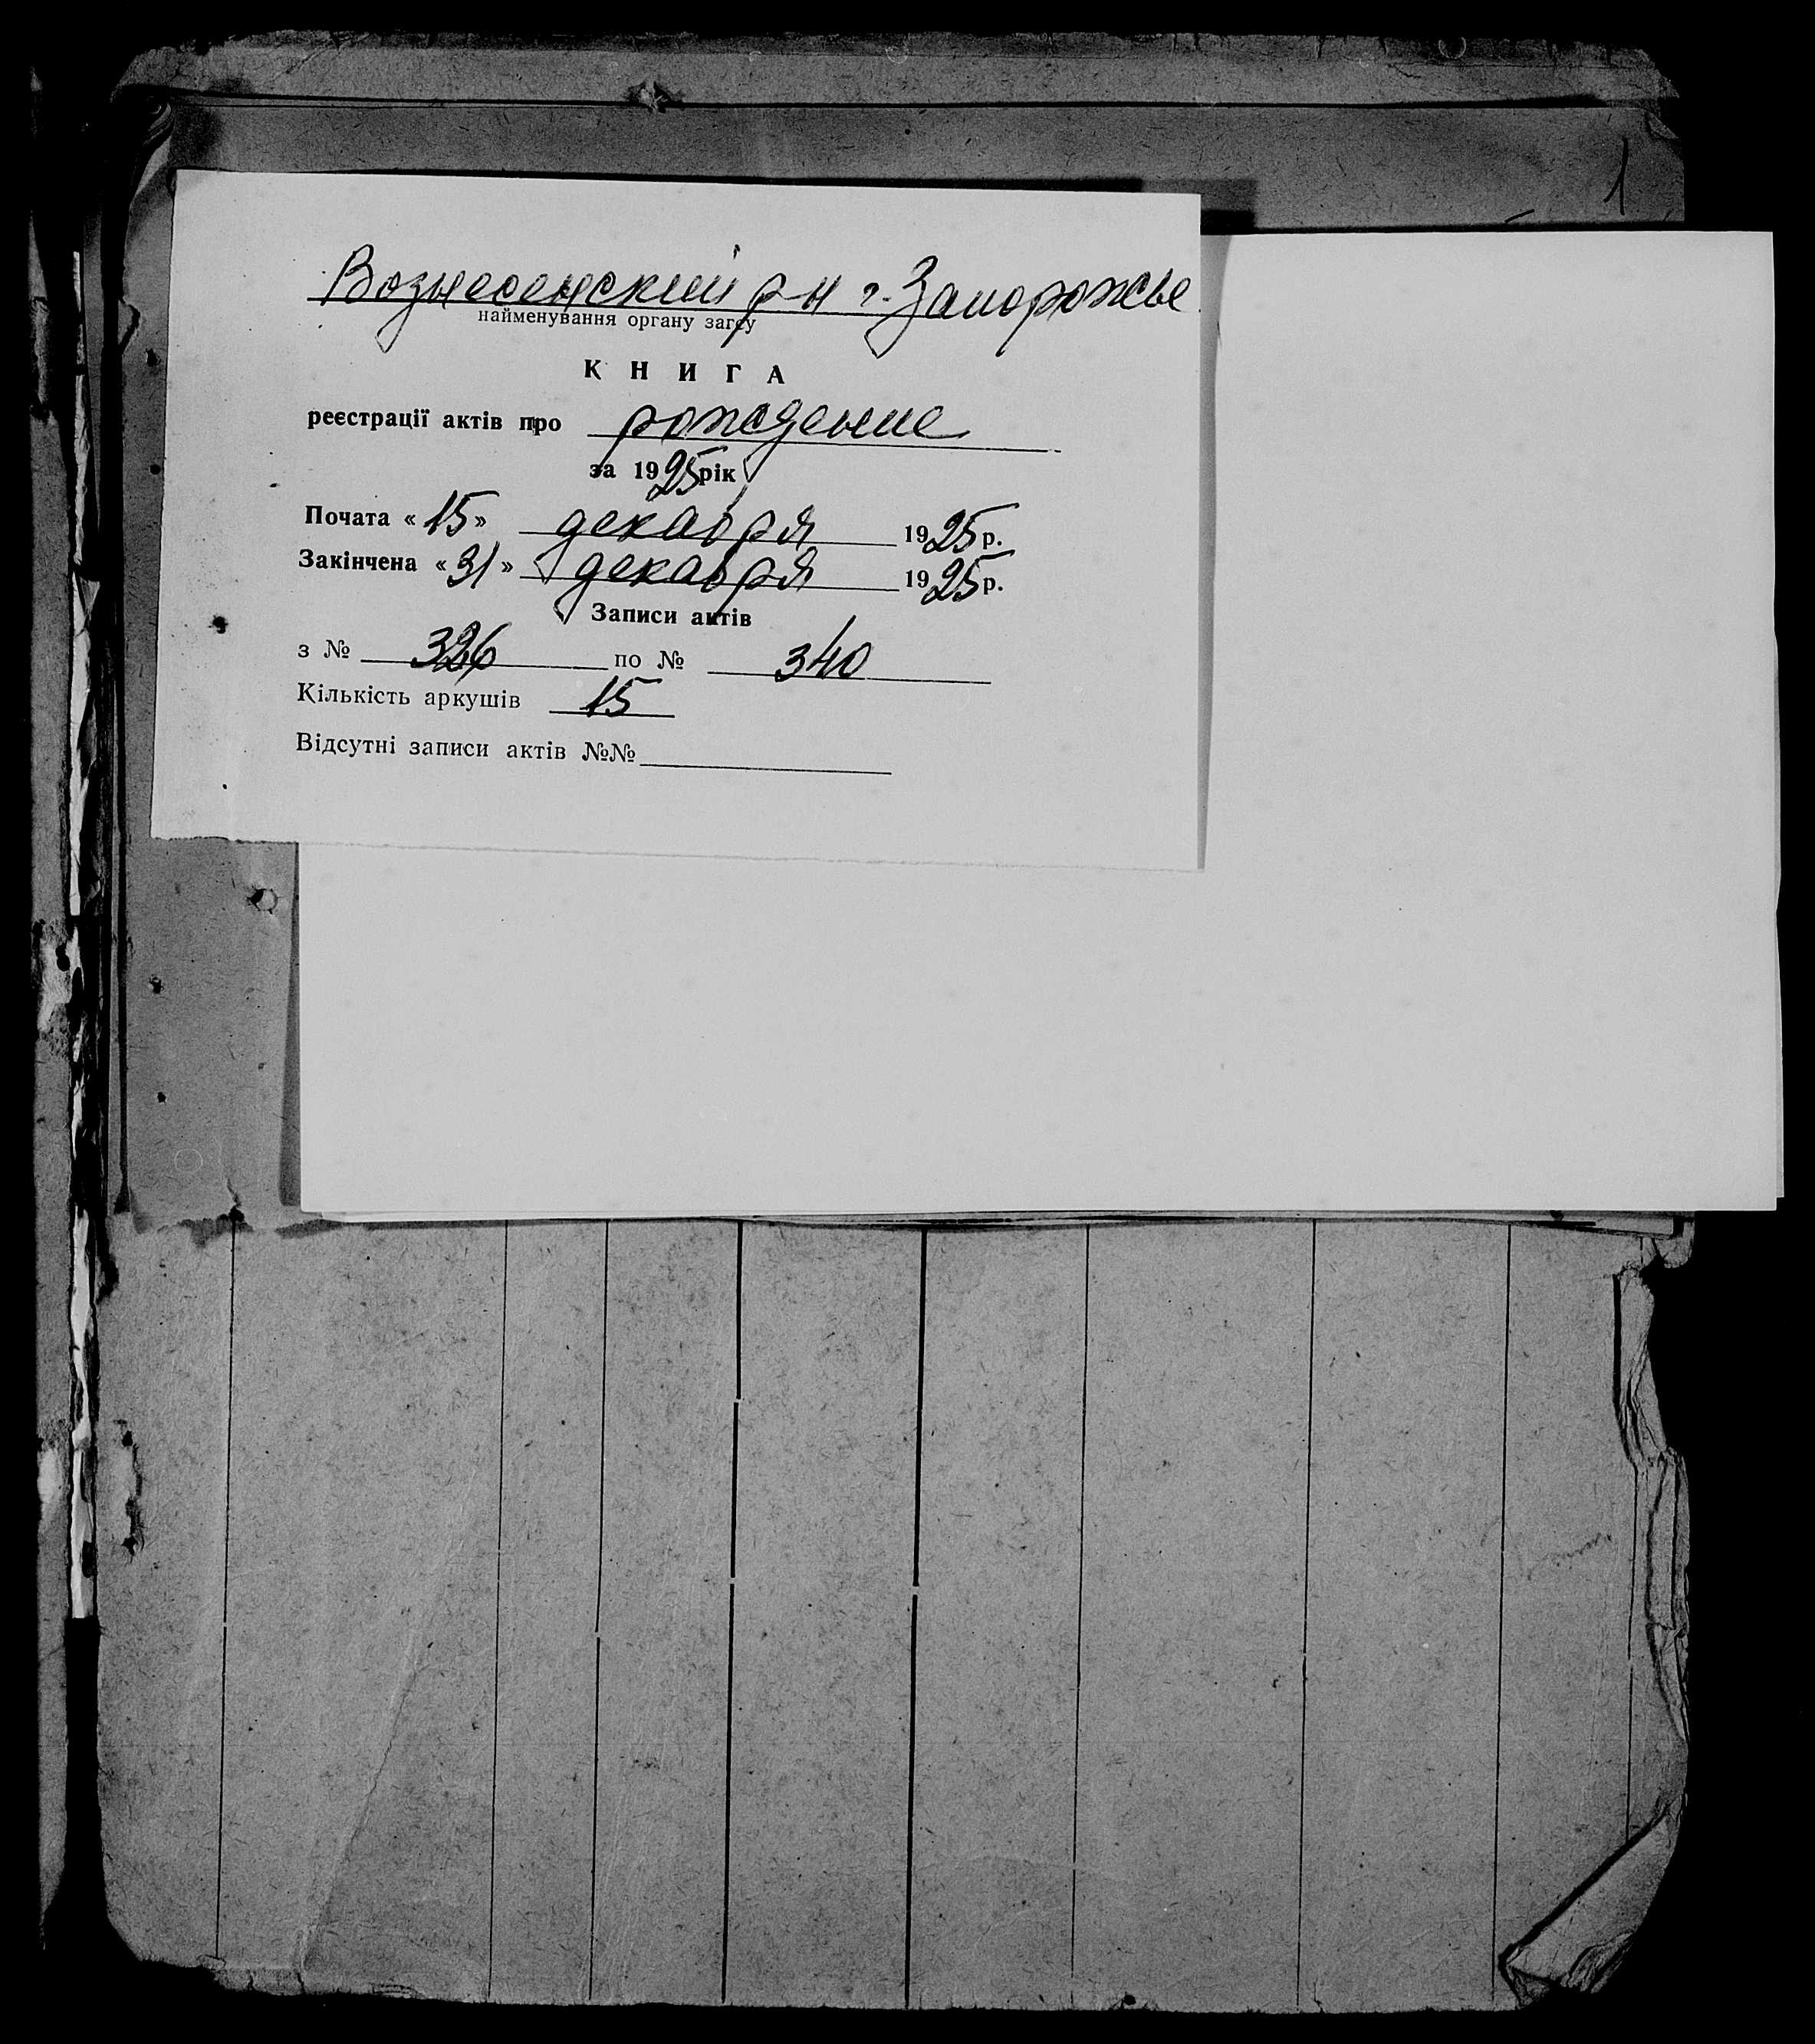 1
Вознесенский р-н г. Запорожье
найменування органу загсу
КНИГА
реєстрації актів про рождение
за 1925 рік
Почата «15» декабря 1925 р.
Закінчена «31» декабря 1925 р.
Записи актів
з № 326 по № 340
Кількість аркушів 15
Відсутні записи актів №№